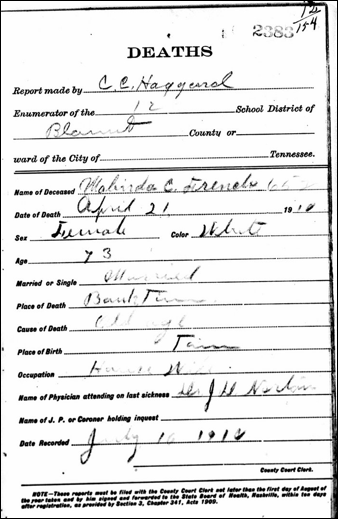 2383
12
154
DEATHS
Report made by C. C. Haggard
Enumerator of the 12 School District of
Blount County or
ward of the City of Tennessee.
Name of Deceased Malinda C. French
Date of Death April 21 191
Sex Female Color White
Age 73
Married or Single Married
Place of Death Bank Tenn
Cause of Death
Place of Birth Tenn
Occupation House Wife
Name of Physician attending on last sickness Dr J H
Name of J. P. or Coroner holding inquest
Date Recorded July 10 191
County Court Clerk.
NOTE—These reports must be filed with the County Court Clerk not later than the first day of August of
the year taken and by him signed and forwarded to the State Board of Health, Nashville, within ten days
after registration, as provided by Section 3, Chapter 341, Acts 1909.